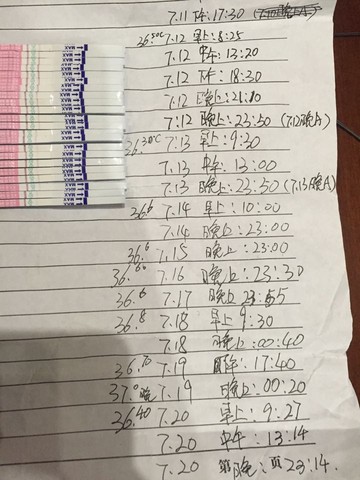 7.11 下午:17:30
36.50℃ 7.12 早上:8:25
7.12 中午:13:20
7.12 下午:18:30
7.12 晚上:21:10
7.12 晚上:23:50 (7.12晚A)
36.30℃ 7.13 早上:9:30
7.13 中午:13:00
7.13 晚上:23:50 (7.13晚A)
36.6 7.14 早上:10:00
7.14 晚上:23:00
36.6 7.15 晚上:23:00
7.16 晚上:23:30
36.6 7.17 晚上 23:55
36.8 7.18 早上 9:30
7.18 晚上:00:40
36.70 7.19 下午:17:40
37.0 晚 7.19 晚上:00:20
36.40 7.20 早上:9:27
7.20 中午:13:14
7.20 晚:23:14.
MAX